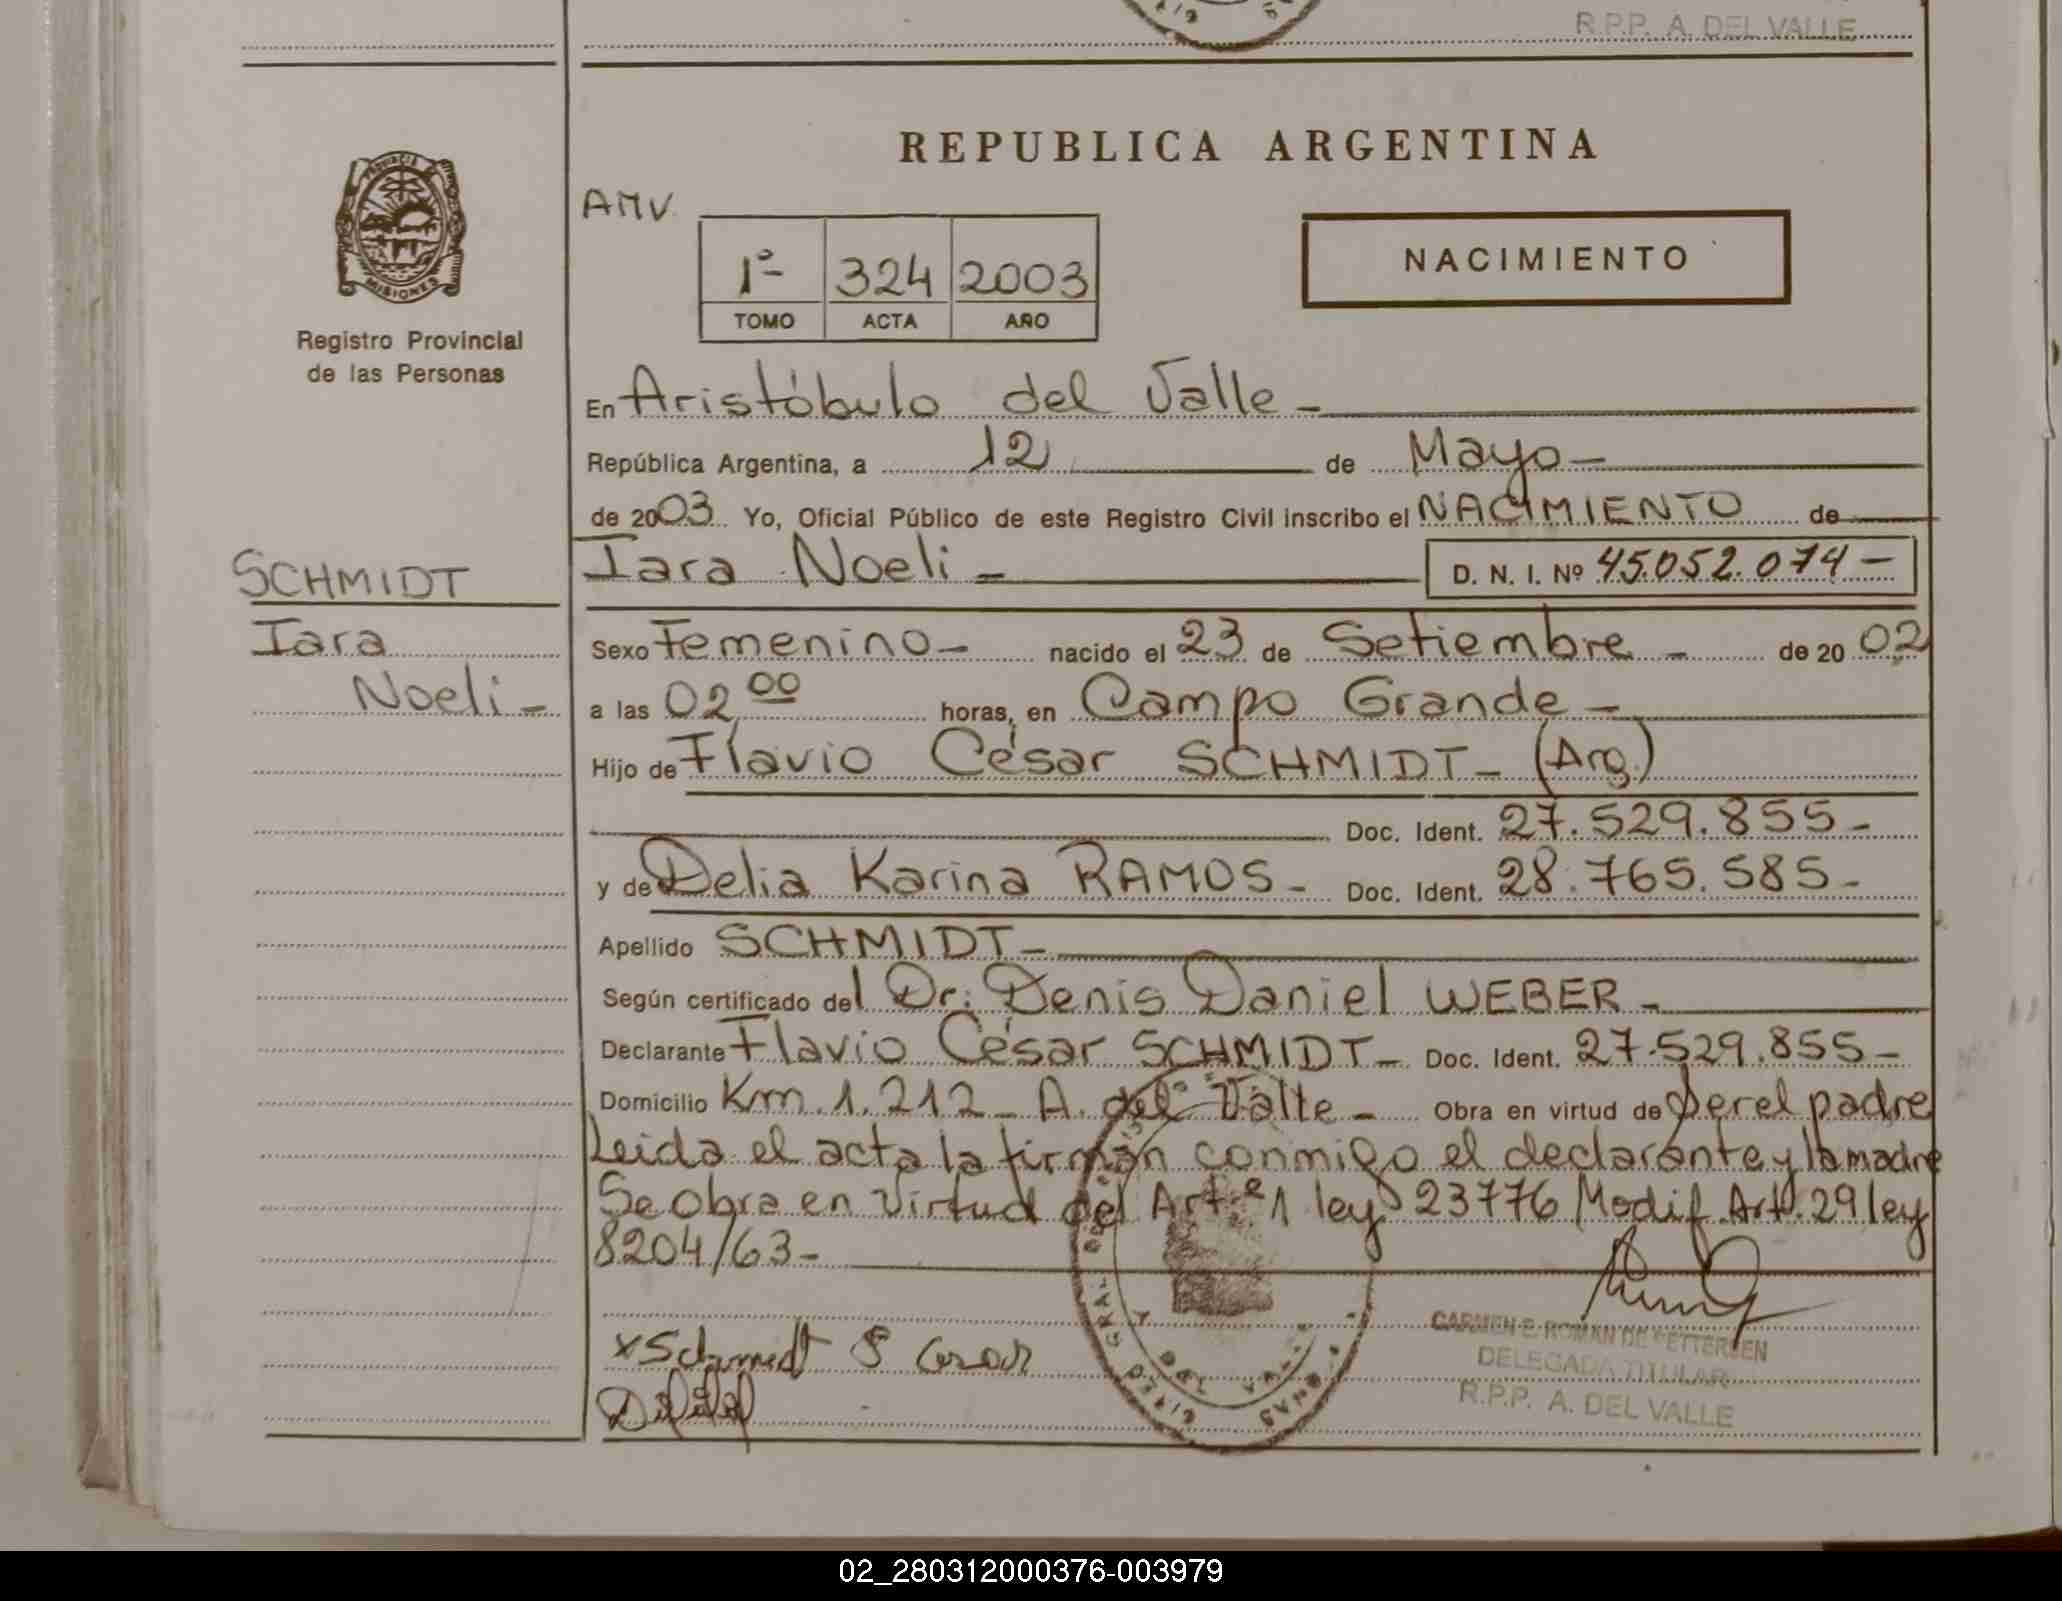 R.P.P. A. DEL VALLE
REPUBLICA ARGENTINA
PROVINCIA DE
MISIONES
Registro Provincial
de las Personas
AMV.
NACIMIENTO
1º- 324 2003
TOMO ACTA AÑO
En Aristóbulo del Valle -
República Argentina, a 12 de Mayo -
de 2003 Yo, Oficial Público de este Registro Civil inscribo el NACIMIENTO de
Iara Noeli - D. N. I. Nº 45.052.074 -
SCHMIDT
Iara
Noeli -
Sexo Femenino - nacido el 23 de Setiembre - de 2002
a las 02 00 horas, en Campo Grande -
Hijo de Flavio César SCHMIDT - (Arg.)
Doc. Ident. 27.529.855 -
y de Delia Karina RAMOS - Doc. Ident. 28.765.585 -
Apellido SCHMIDT -
Según certificado del Dr. Denis Daniel WEBER -
Declarante Flavio César SCHMIDT - Doc. Ident. 27.529.855 -
Domicilio Km. 1.212 - A. del Valle - Obra en virtud de Ser el padre
Leida el acta la firman conmigo el declarante y la madre
Se obra en Virtud del Art.º 1 ley 23776 Modif. Art. 29 ley
8204/63 -
x Schmidt F Cesar
CARMEN E. ROMAN DE PETTERSEN
DELEGADA TITULAR
R.P.P. A. DEL VALLE
02_280312000376-003979